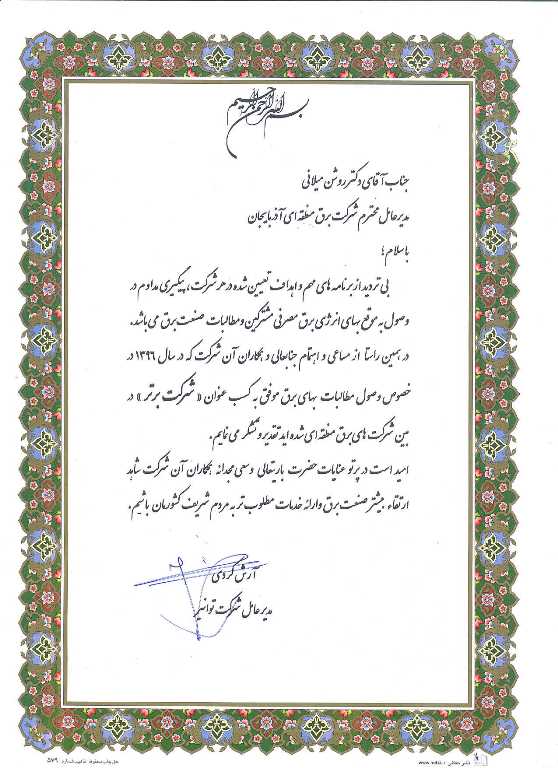 بسم الله الرحمن الرحیم
جناب آقای دکتر روشن میلانی
مدیرعامل محترم شرکت برق منطقه ای آذربایجان
باسلام؛
بی تردید از برنامه های مهم و اهداف تعیین شده در هر شرکت، پیگیری مداوم در
وصول به موقع بهای انرژی برق مصرفی مشترکین و مطالبات صنعت برق می باشد.
در همین راستا از مساعی و اهتمام جنابعالی و همکاران آن شرکت که در سال ۱۳۹۶ در
خصوص وصول مطالبات بهای برق موفق به کسب عنوان « شرکت برتر » در
بین شرکت های برق منطقه ای شده اید تقدیر و تشکر می نمایم.
امید است در پرتو عنایات حضرت باریتعالی و سعی مجدانه همکاران آن شرکت شاهد
ارتقاء بیشتر صنعت برق و ارائه خدمات مطلوب تر به مردم شریف کشورمان باشیم.
آرش کردی
مدیرعامل شرکت توانیر